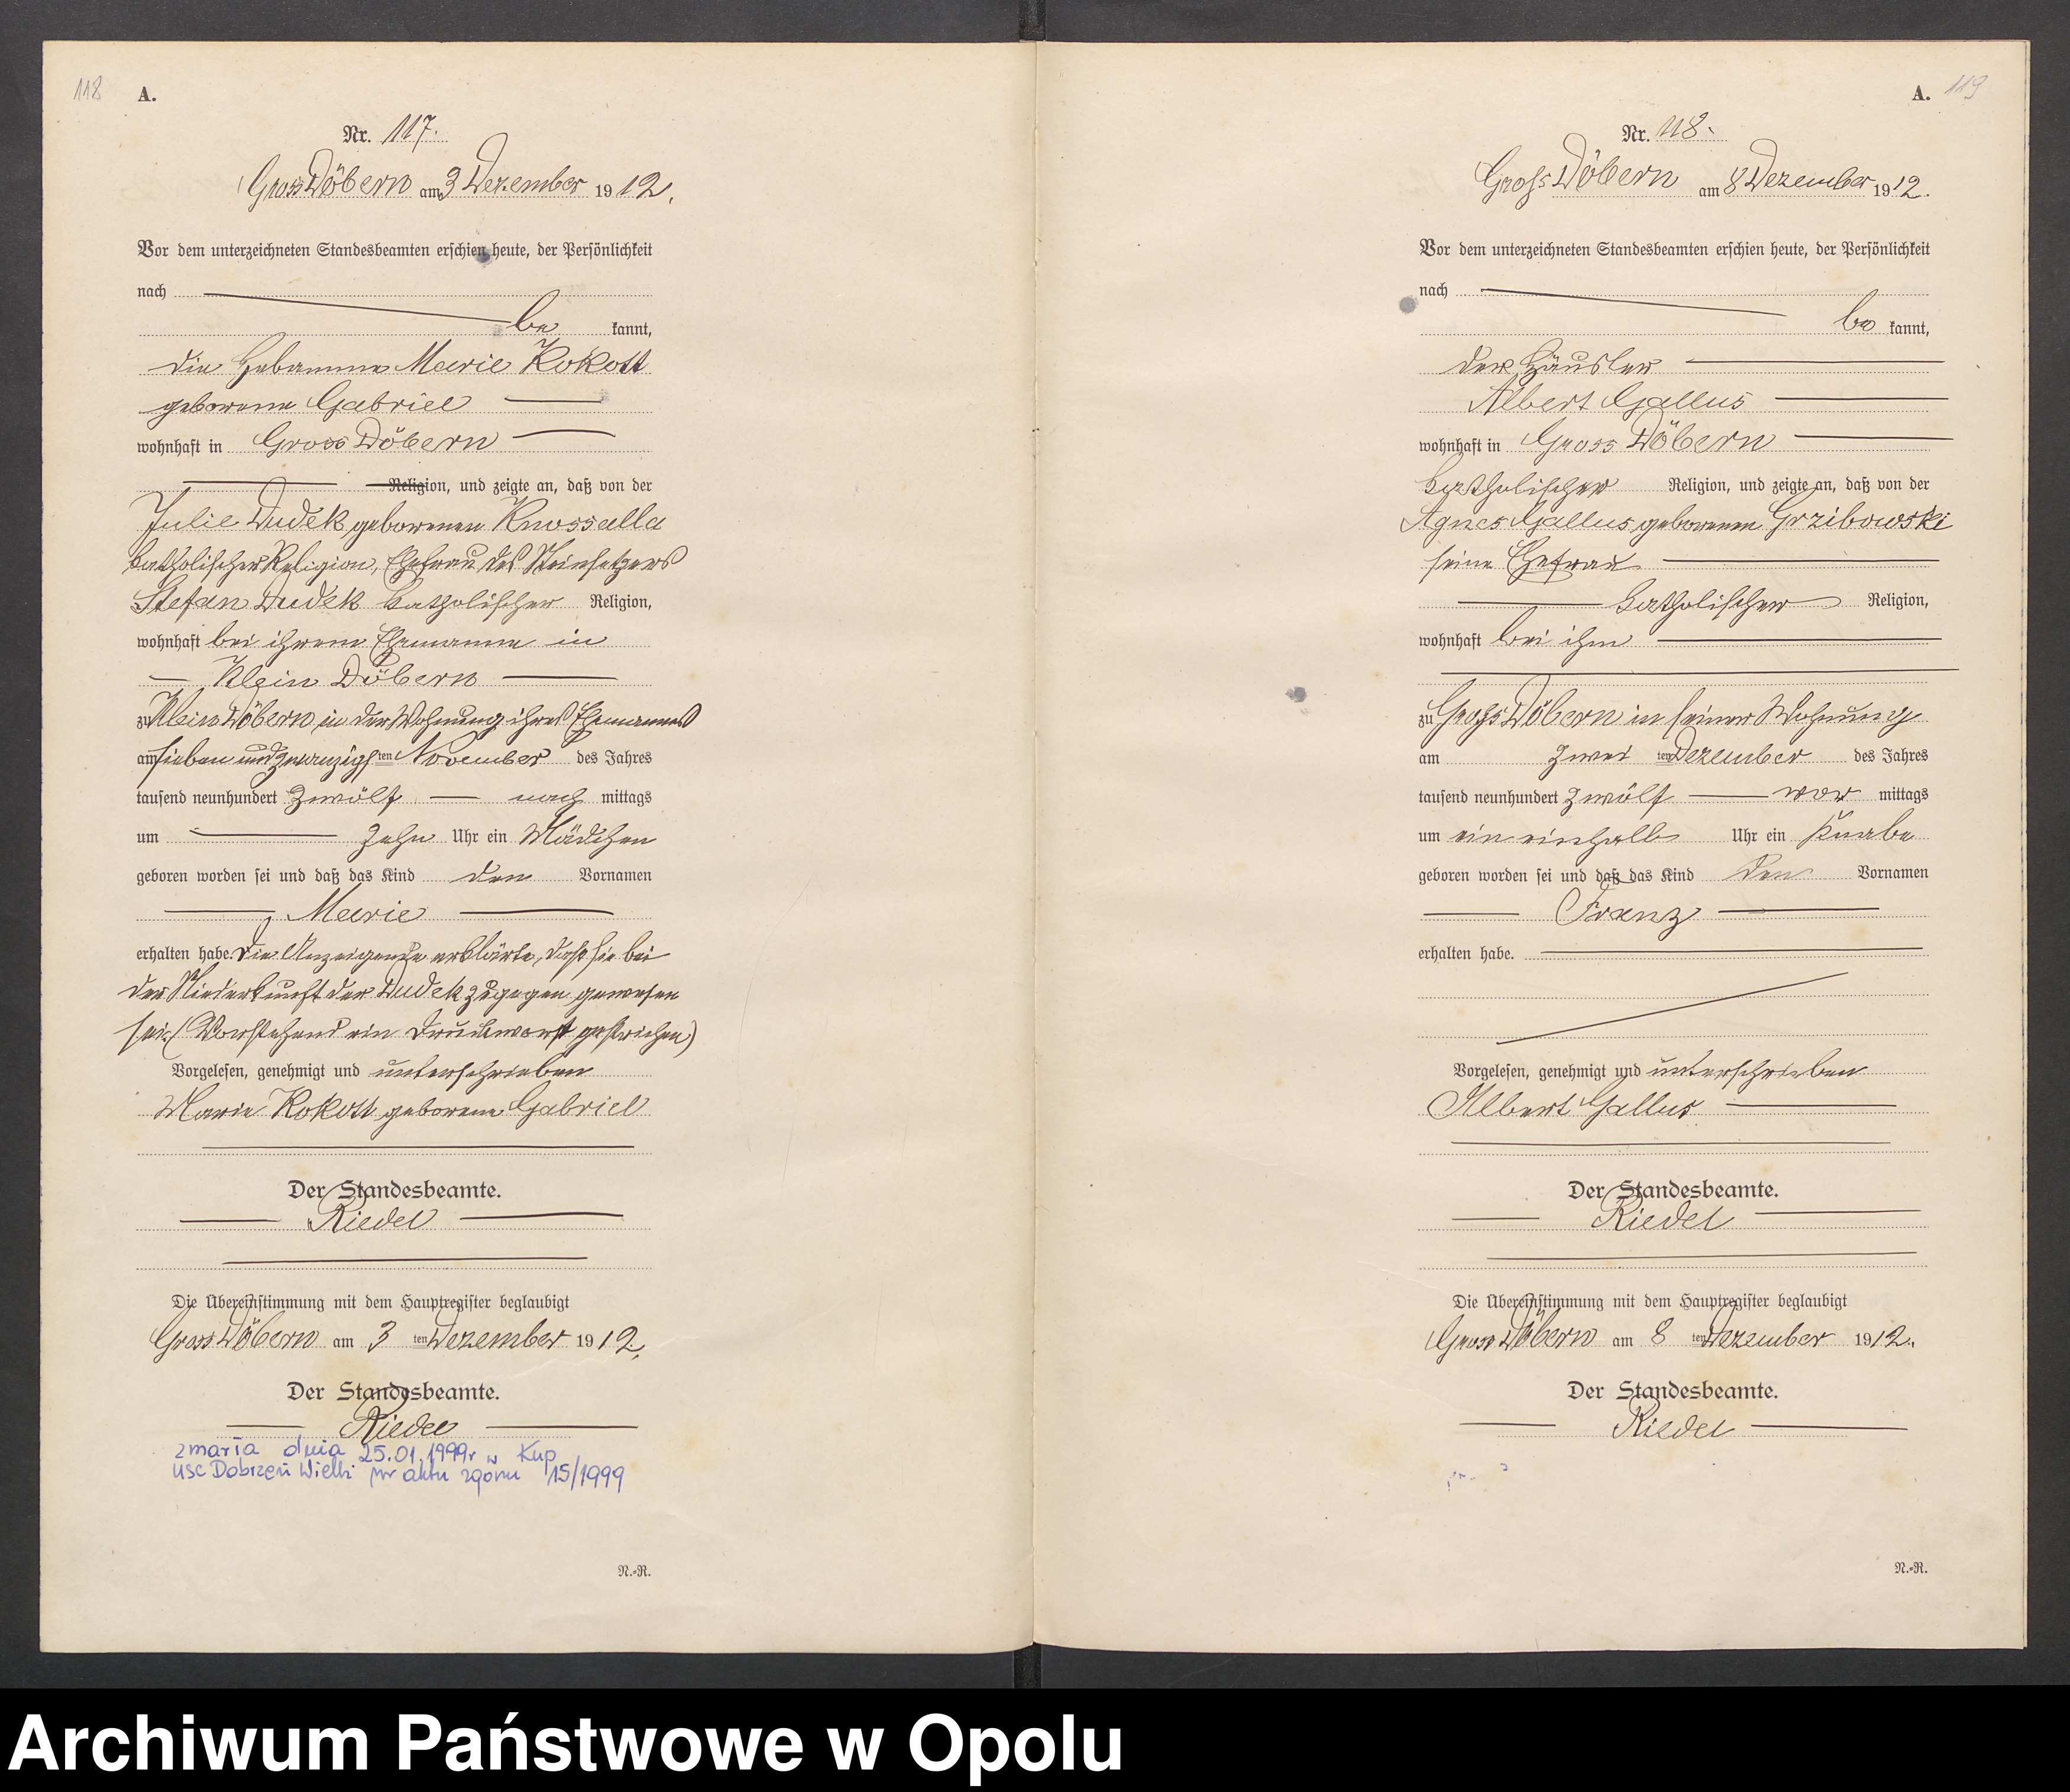 118
A.
Nr. 117.
Gross Döbern am 3 Dezember 1912.
Vor dem unterzeichneten Standesbeamten erschien heute, der Persönlichkeit
nach
be kannt,
die Hebamme Marie Kokott
geborene Gabriel
wohnhaft in Gross Döbern
Religion, und zeigte an, daß von der
Julie Dudek, geborenen Knossalla
katholischer Religion, Ehefrau des Steinsetzers
Stefan Dudek katholischer Religion,
wohnhaft bei ihrem Ehemanne in
Klein Döbern
zu Klein Döbern, in der Wohnung ihres Ehemannes
am sieben und zwanzigsten November des Jahres
tausend neunhundert zwölf nach mittags
um zehn Uhr ein Mädchen
geboren worden sei und daß das Kind den Vornamen
Marie
erhalten habe. Die Anzeigende erklärte, daß sie bei
der Niederkunft der Dudek zugegen gewesen
sei. (Vorstehend ein Druckwort gestrichen)
Vorgelesen, genehmigt und unterschrieben
Marie Kokott geborene Gabriel
Der Standesbeamte.
Riedel
Die Übereinstimmung mit dem Hauptregister beglaubigt
Gross Döbern am 3 ten Dezember 1912.
Der Standesbeamte.
Riedel
zmarła dnia 25.01.1999r w Kup
USC Dobrzeń Wielki nr aktu zgonu 15/1999
N.-R.
A. 119
Nr. 118.
Groß Döbern am 8 Dezember 1912.
Vor dem unterzeichneten Standesbeamten erschien heute, der Persönlichkeit
nach
be kannt,
der Häusler
Albert Gallus
wohnhaft in Gross Döbern
katholischer Religion, und zeigte an, daß von der
Agnes Gallus geborenen Grzibowski
seine Ehefrau
katholischer Religion,
wohnhaft bei ihm
zu Groß Döbern in seiner Wohnung
am zwei ten Dezember des Jahres
tausend neunhundert zwölf vor mittags
um ein einhalb Uhr ein Knabe
geboren worden sei und daß das Kind den Vornamen
Franz
erhalten habe.
Vorgelesen, genehmigt und unterschrieben
Albert Gallus
Der Standesbeamte.
Riedel
Die Übereinstimmung mit dem Hauptregister beglaubigt
Gross Döbern am 8 ten Dezember 1912.
Der Standesbeamte.
Riedel
N.-R.
Archiwum Państwowe w Opolu